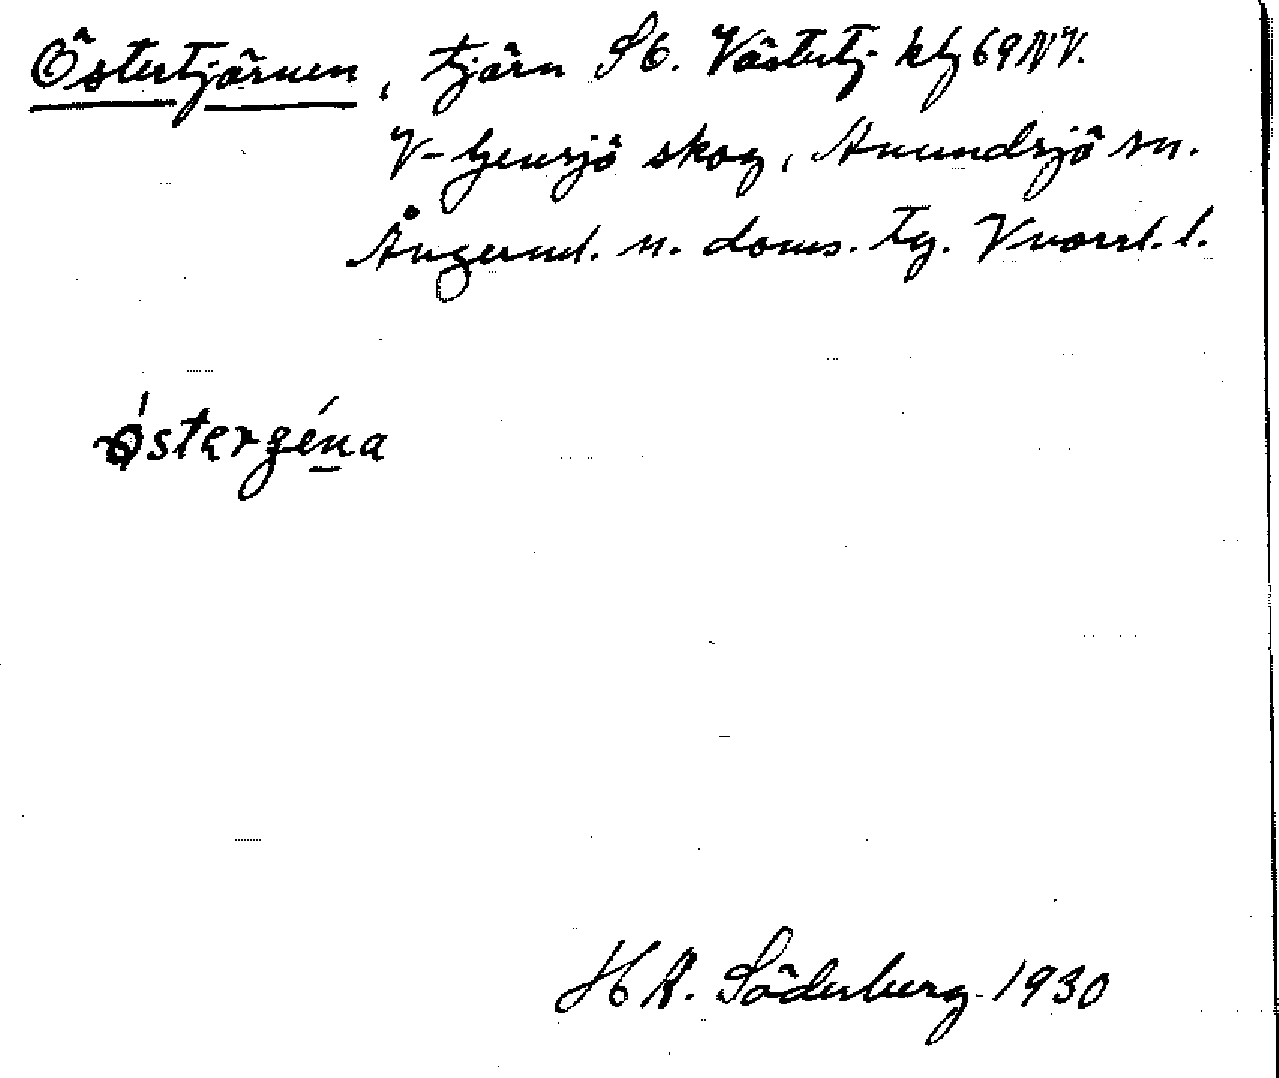 Östertjärnen, tjärn SO. Västertj. kbl 69NV.
V-Gensjö skog, Anundsjö sn.
Ångerml. n. doms. tg. Vnorrl. l.
östergéna
H A. Söderberg 1930